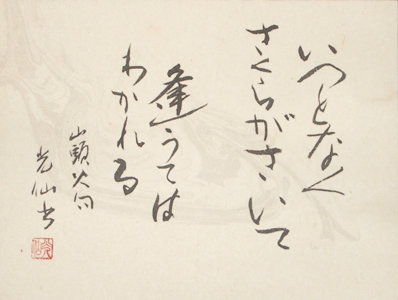 いつとなく
さくらがさいて
逢うては
わかれる
山頭火句
光仙書